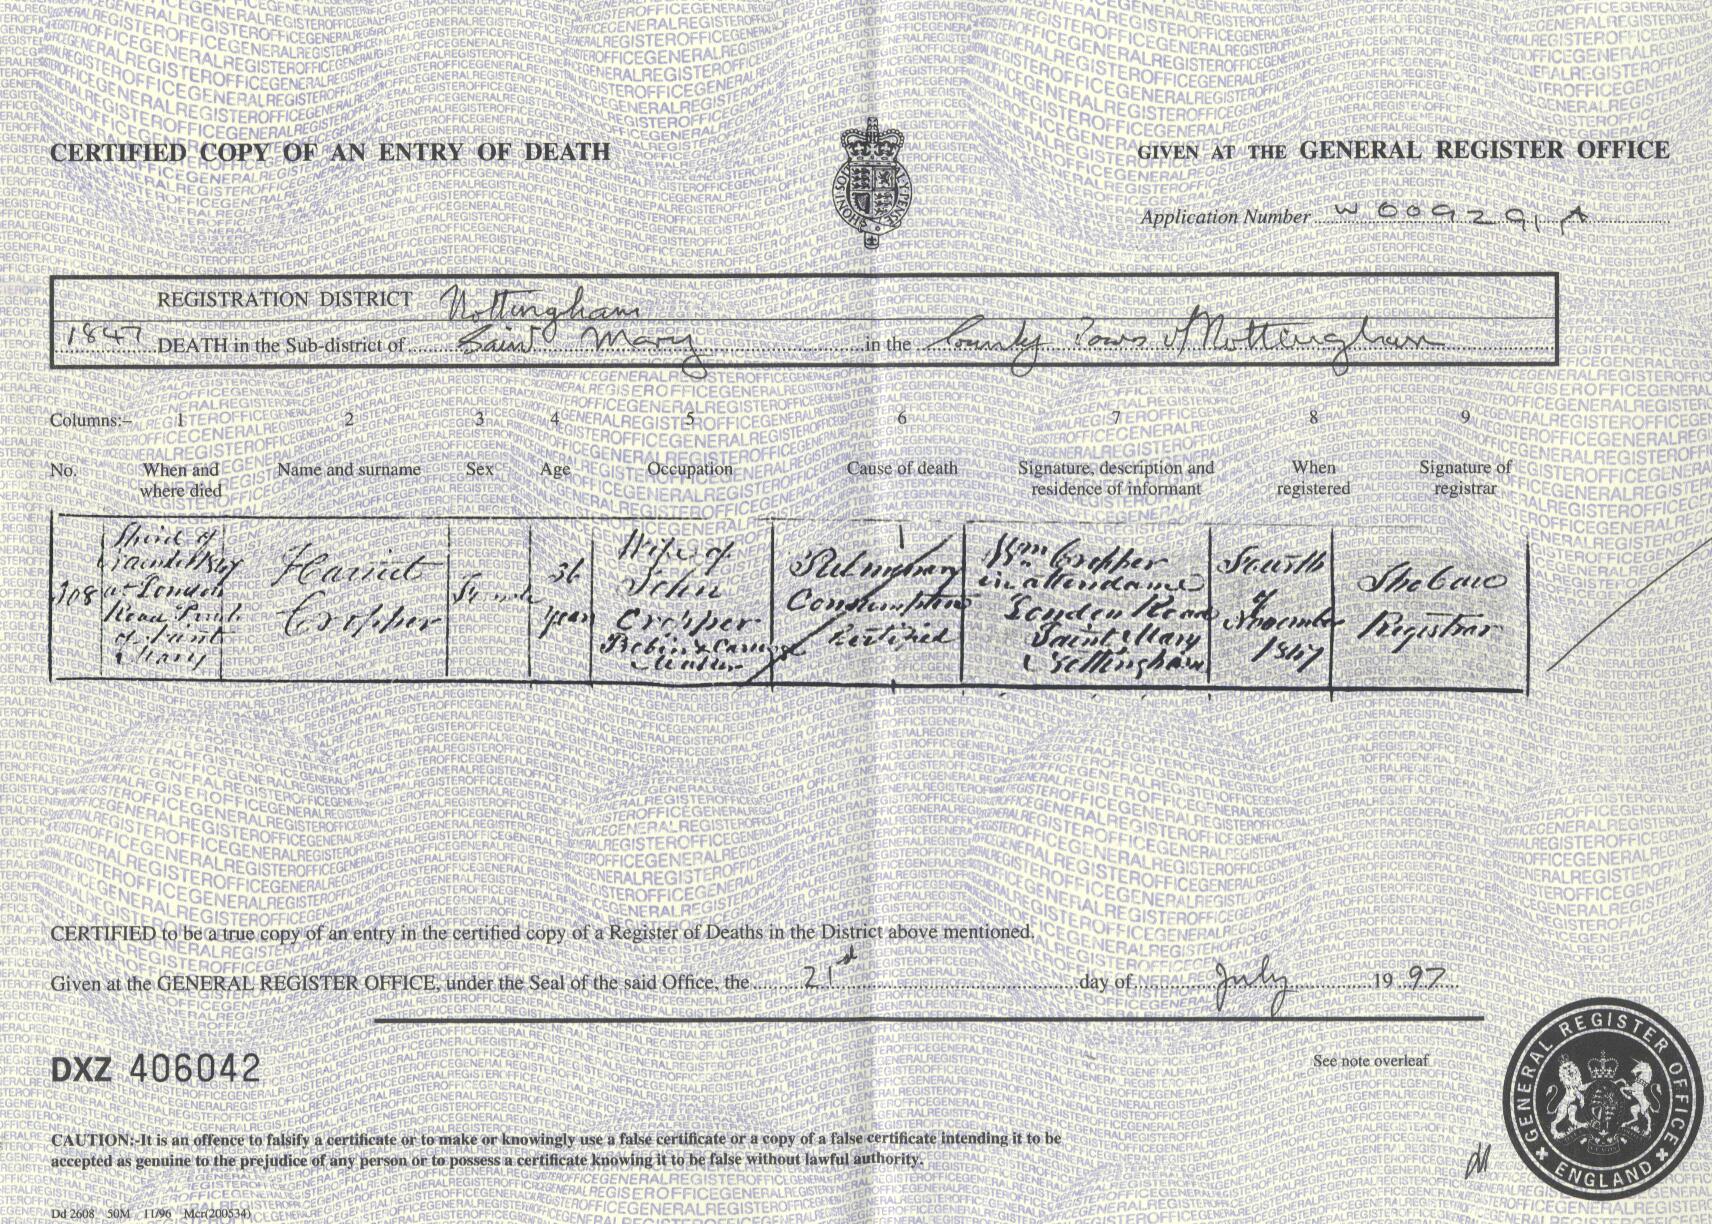 CERTIFIED COPY OF AN ENTRY OF DEATH
GIVEN AT THE GENERAL REGISTER OFFICE
Application Number W009291A
REGISTRATION DISTRICT Nottingham
1847 DEATH in the Sub-district of Saint Mary in the County Town of Nottingham
Columns:- 1 2 3 4 5 6 7 8 9
No. When and where died Name and surname Sex Age Occupation Cause of death Signature, description and residence of informant When registered Signature of registrar
308
Third of
1847
at London
Road
of Saint
Mary
Harriet
Cropper
Female
36
years
Wife of
John
Cropper
Bobbin & Carriage
Maker
Pulmonary
Consumption
Certified
Wm Cropper
in attendance
London Road
Saint Mary
Nottingham
Fourth
of
November
1847
Registrar
CERTIFIED to be a true copy of an entry in the certified copy of a Register of Deaths in the District above mentioned.
Given at the GENERAL REGISTER OFFICE, under the Seal of the said Office, the 21st day of July 1997
DXZ 406042
See note overleaf
CAUTION:-It is an offence to falsify a certificate or to make or knowingly use a false certificate or a copy of a false certificate intending it to be
accepted as genuine to the prejudice of any person or to possess a certificate knowing it to be false without lawful authority.
Dd 2608 50M 11/96 Mcr(200534)
GENERAL REGISTER OFFICE
ENGLAND